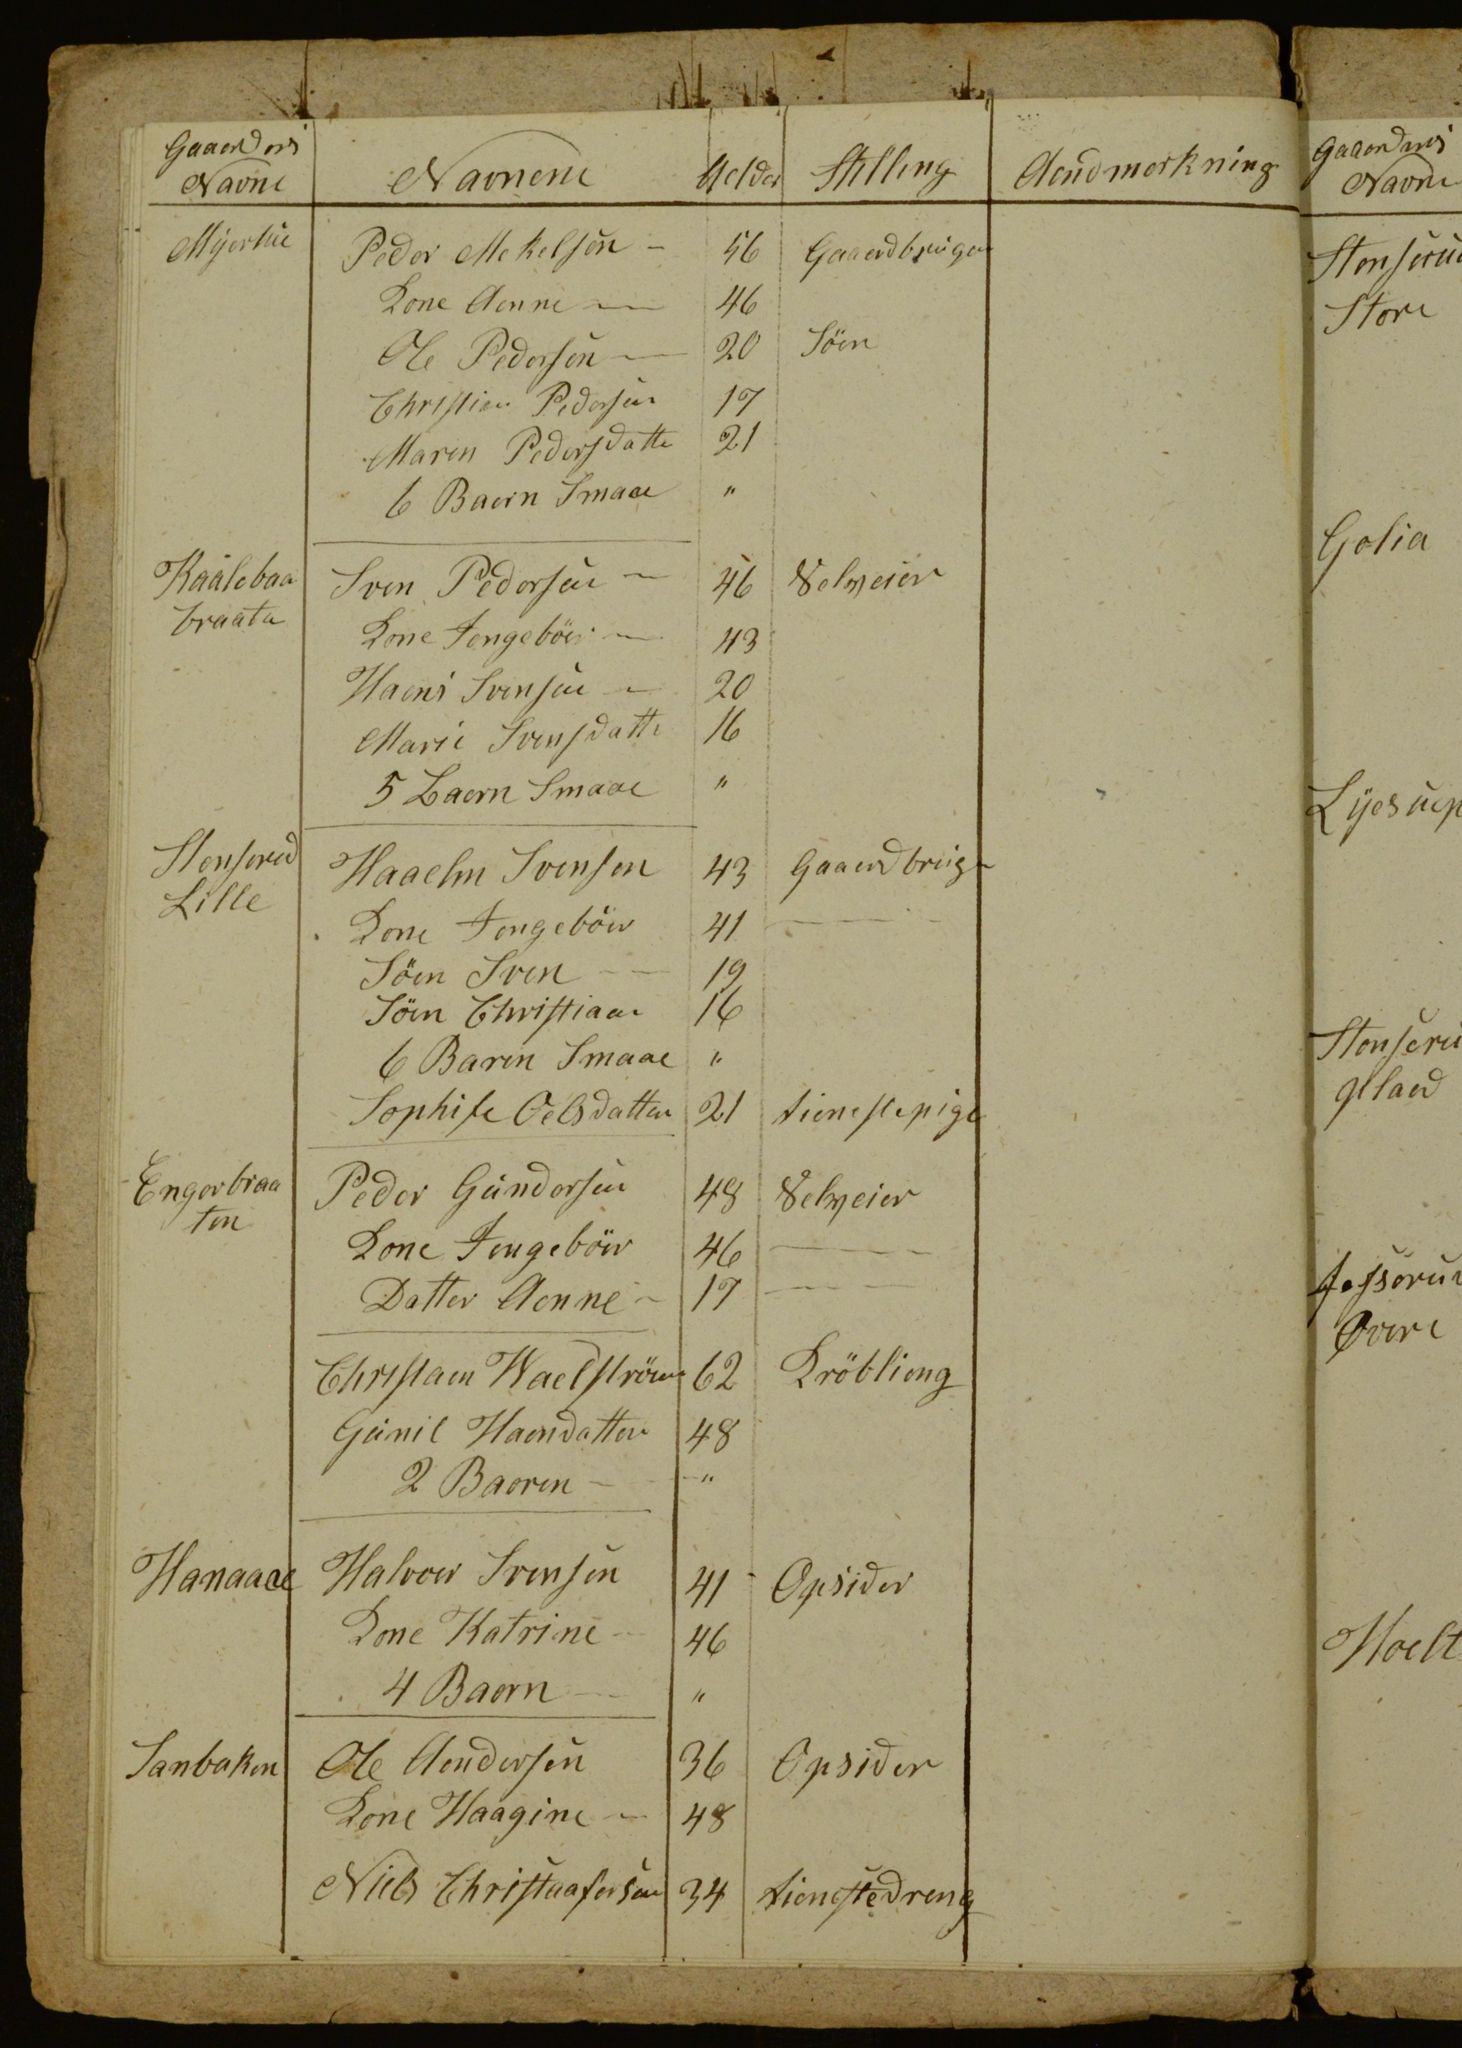 Gaaerders
Navne Navnene Aelder Stilling Aendmerkning
Myerhue Peder Mekelsen - 56 Gaaerdbruger
Kone Aenne - 46
Ole Pedersen - 20 Söen
Christian Pedersen 17
Maren Pedersdatte 21
6 Baern Smaae "
Kaalebaa Sven Pedersen - 46 Selveier
braata Kone Iengeböer - 43
Haens Svensen - 20
Marie Svensdatte 16
5 Baern Smaae "
Stenserud Haaelm Svensen 43 Gaaerdbruge
Lille Kone Iengeböer 41 -
Söen Sven - 19
Söen Christiaan 16
6 Baren Smaae "
Sophife Oelsdatter 21 tienestepige
Engerbraa Peder Gundersen 48 Selveier
ten Kone Iengeböer 46 -
Datter Aenne - 17 -
Christaen Waelströem 62 Kröbling
Gunil Haensdatter 48
2 Baeren - "
Hanaaee Halvoer Svensen 41 Opsider
Kone Katrine - 46
4 Baern - "
Sanbaken Ole Aendersen 36 Opsider
Kone Haagine - 48
Niels Christaafersen 34 tienestedreng
Gaaerders
Navne
Stenserud
Store
Golia
Stenseru
Øvere
Hoelt